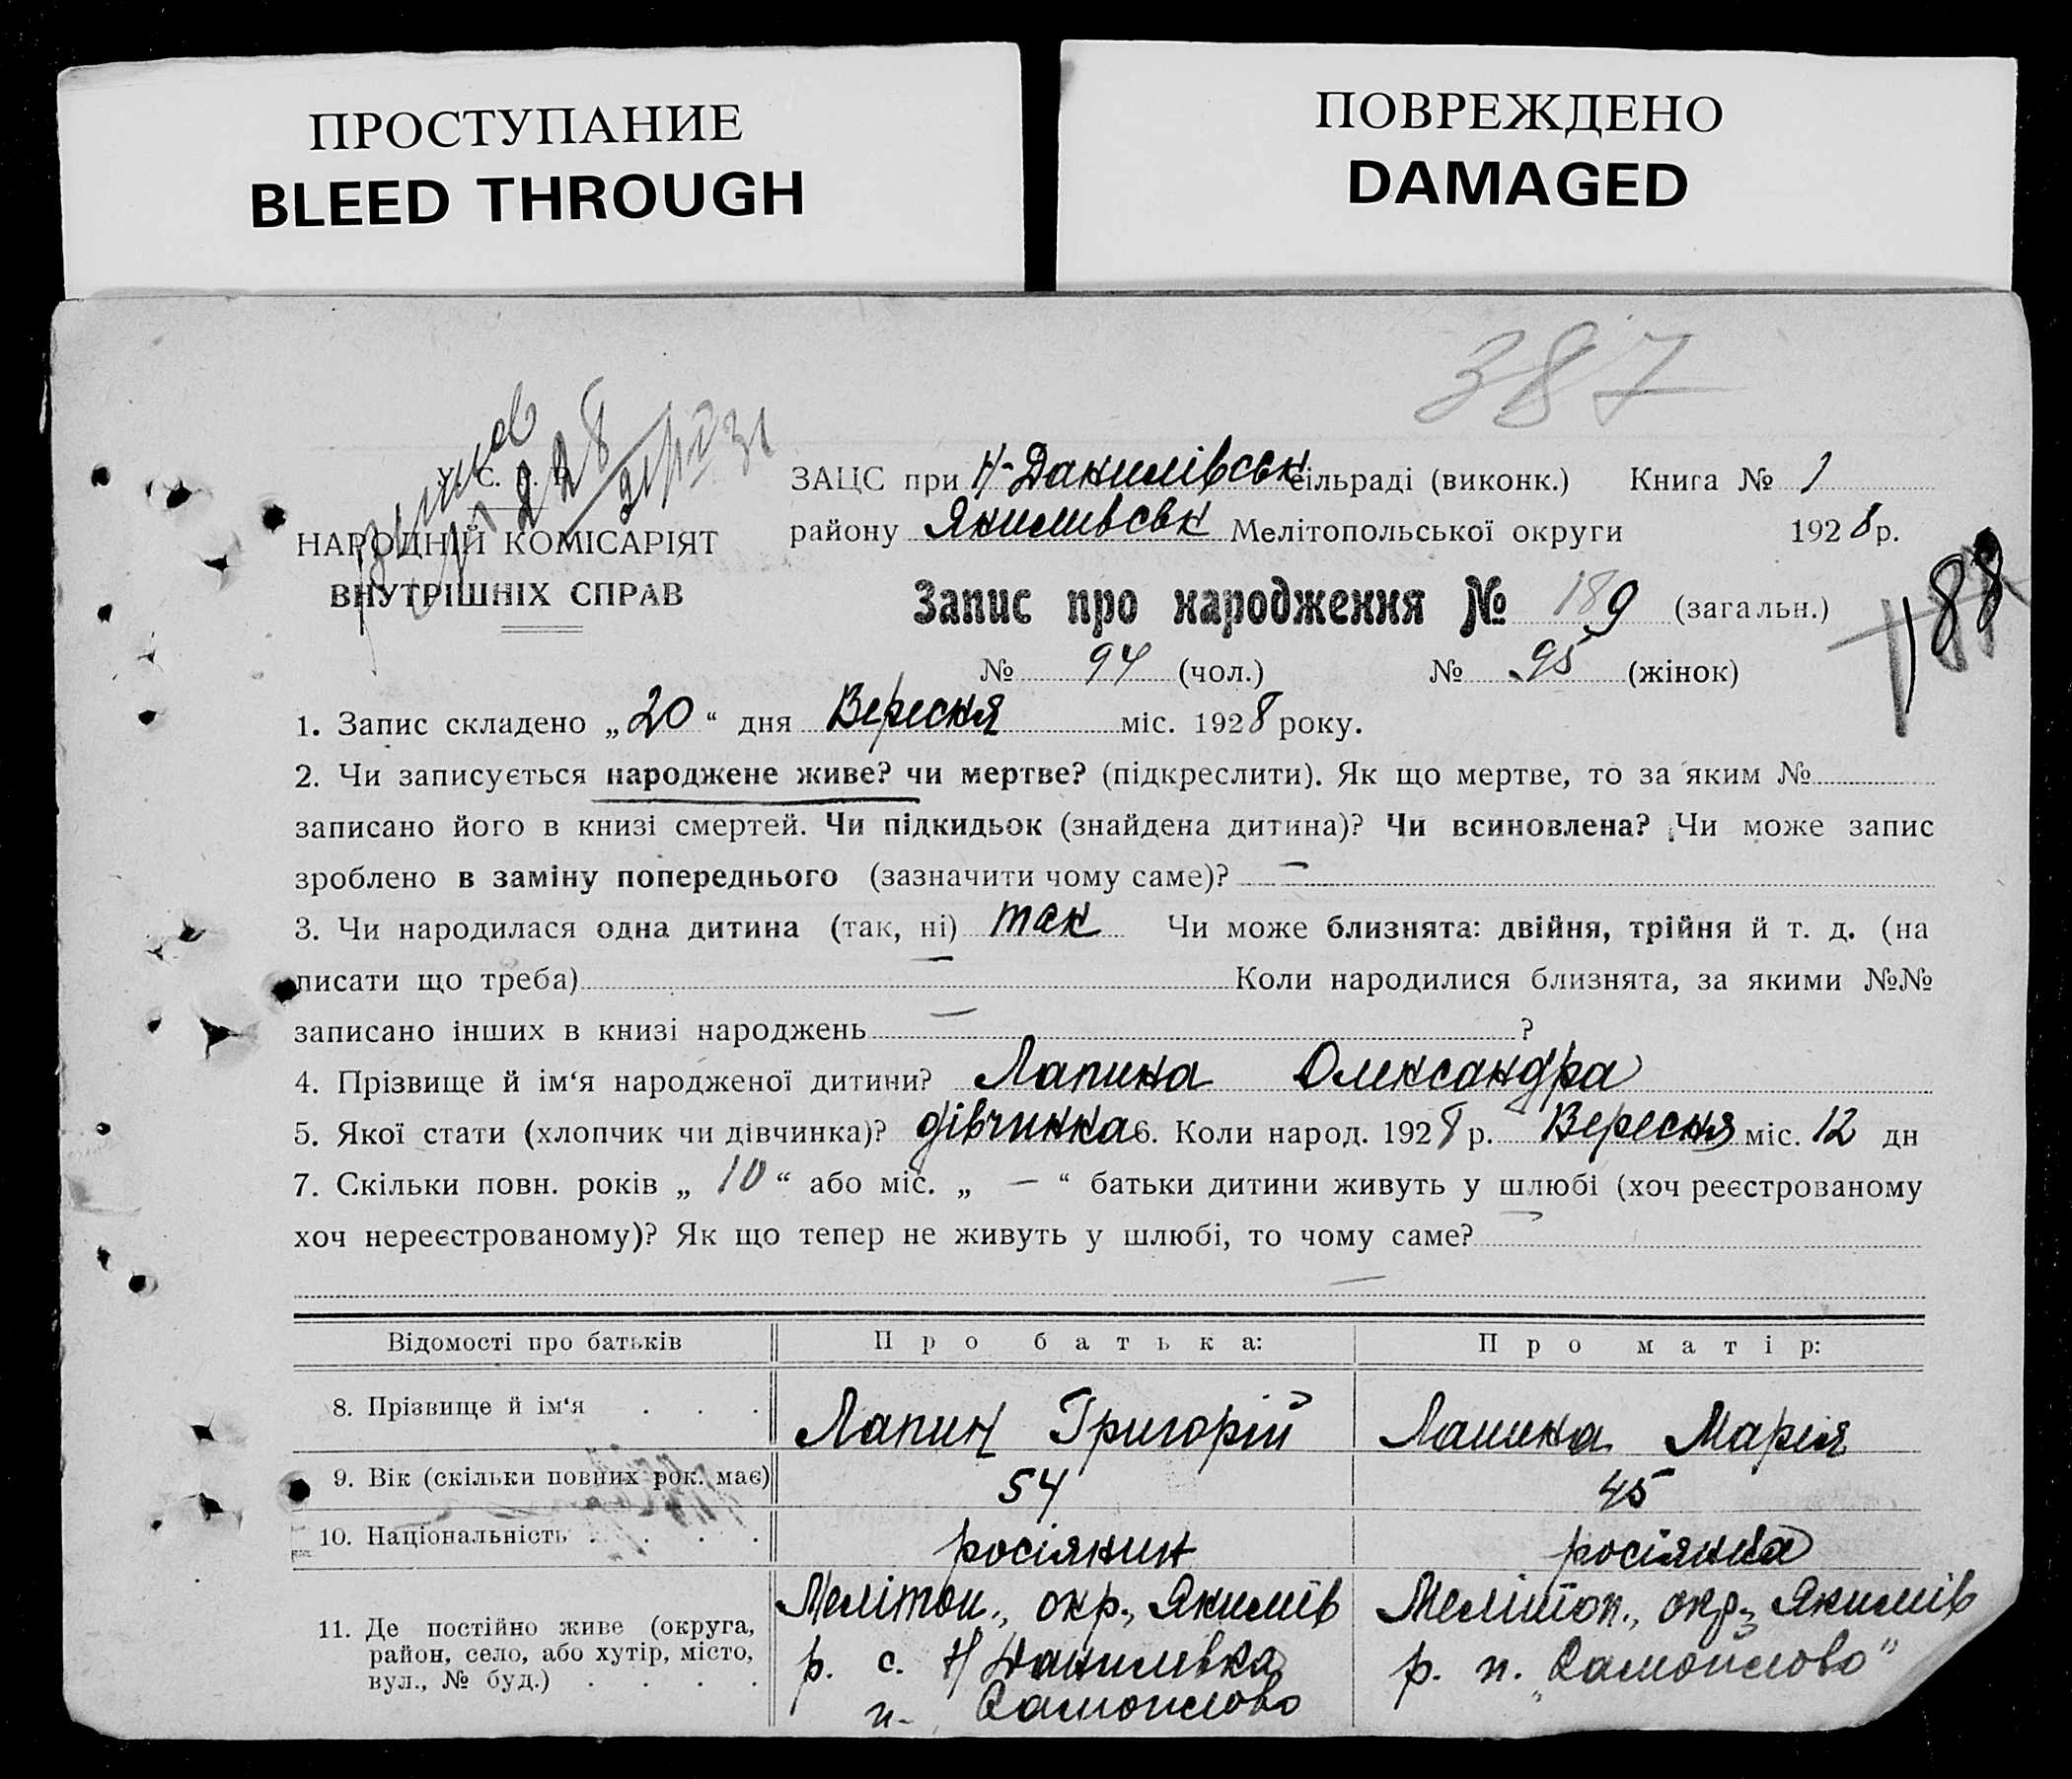 ПРОСТУПАНИЕ
BLEED THROUGH
ПОВРЕЖДЕНО
DAMAGED
387
У. С. Р. Р.
НАРОДНІЙ КОМІСАРІЯТ
ВНУТРІШНІХ СПРАВ
ЗАЦС при Н-Данилівськ сільраді (виконк.) Книга № 1
району Якимивськ Мелітопольської округи 1928 р.
Запис про народження № 189 (загальн.)
188
№ 94 (чол.) № 95 (жінок)
1. Запис складено „20“ дня Вересня міс. 1928 року.
2. Чи записується народжене живе? чи мертве? (підкреслити). Як що мертве, то за яким №
записано його в книзі смертей. Чи підкидьок (знайдена дитина)? Чи всиновлена? Чи може запис
зроблено в заміну попереднього (зазначити чому саме)? —
3. Чи народилася одна дитина (так, ні) так Чи може близнята: двійня, трійня й т. д. (на
писати що треба) — Коли народилися близнята, за якими №№
записано інших в книзі народжень — ?
4. Прізвище й ім‘я народженої дитини? Лапина Олександра
5. Якої стати (хлопчик чи дівчинка)? дівчинка 6. Коли народ. 1928 р. Вересня міс. 12 дн
7. Скільки повн. років „ 10 “ або міс. „ — “ батьки дитини живуть у шлюбі (хоч реєстрованому
хоч нереєстрованому)? Як що тепер не живуть у шлюбі, то чому саме? —
—
Відомості про батьків Про батька: Про матір:
8. Прізвище й ім‘я . . . Лапин Григорій Лапина Марія
9. Вік (скільки повних рок. має) 54 45
10. Національність . . . . росіянин росіянка
11. Де постійно живе (округа, район, село, або хутір, місто, вул., № буд.) . . . .
Мелітоп., окр., Якимів
р. с. Н Данилівка
п. Самойлово
Мелітоп., окр., Якимів
р. п. „Самойлово"